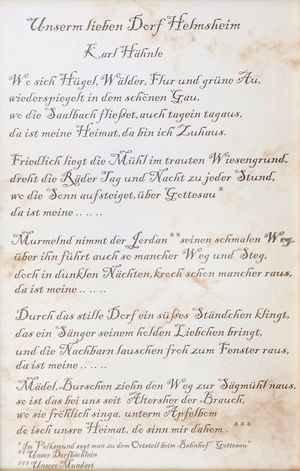 Unserm lieben Dorf Helmsheim
Karl Hähnle
Wo sich Hügel, Wälder, Flur und grüne Au,
wiederspiegelt in dem schönen Gau,
wo die Saalbach fließet, auch tagein tagaus,
da ist meine Heimat, da bin ich Zuhaus.
Friedlich liegt die Mühl im trauten Wiesengrund,
dreht die Räder Tag und Nacht zu jeder Stund,
wo die Sonn aufsteiget, über Gottesau*
da ist meine .. .. ..
Murmelnd nimmt der Jordan **seinen schmalen Weg,
über ihn führt auch so mancher Weg und Steg,
doch in dunklen Nächten, kroch schon mancher raus,
da ist meine .. .. ..
Durch das stille Dorf ein süßes Ständchen klingt,
das ein Sänger seinem holden Liebchen bringt,
und die Nachbarn lauschen froh zum Fenster raus,
da ist meine .. .. ..
Mädel, Burschen ziehn den Weg zur Sägmühl naus,
so ist das bei uns seit Altersher der Brauch,
wo sie fröhlich singa, unterm Apfelbom
do isch unsre Heimat, do sinn mir dahom . ***
*Im Volksmund sagt man zu dem Ortsteil beim Bahnhof "Gottesau"
**Unser Dorfbächlein
***Unsere Mundart